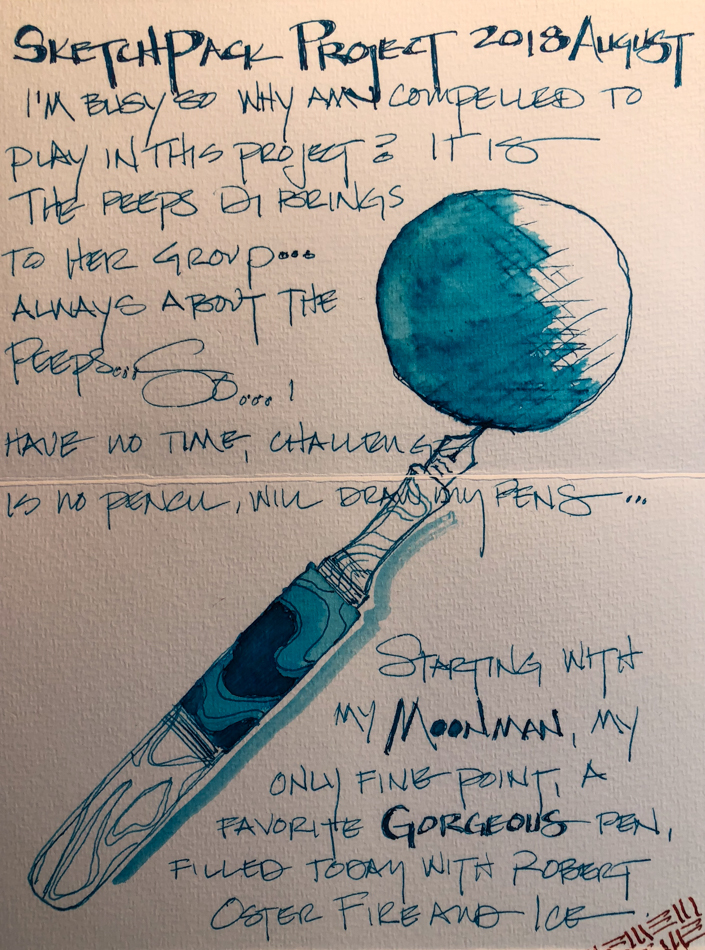 SKETCHPACK PROJECT 2018 AUGUST
I'M BUSY SO WHY AM I COMPELLED TO
PLAY IN THIS PROJECT? IT IS
THE PEEPS DI BRINGS
TO HER GROUP...
ALWAYS ABOUT THE
PEEPS... SO.... I
HAVE NO TIME, CHALLENGE
IS NO PENCIL, WILL DRAW MY PENS...
STARTING WITH
MY MOONMAN, MY
ONLY FINE POINT, A
FAVORITE GORGEOUS PEN,
FILLED TODAY WITH ROBERT
OSTER FIRE AND ICE